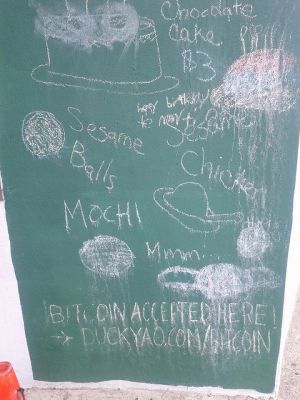 Chocolate
Cake
$3
Sesame
Balls
Sesame
Chicken
MOCHI
Mmm...
BITCOIN ACCEPTED HERE!
→ DUCKYAO.COM/BITCOIN